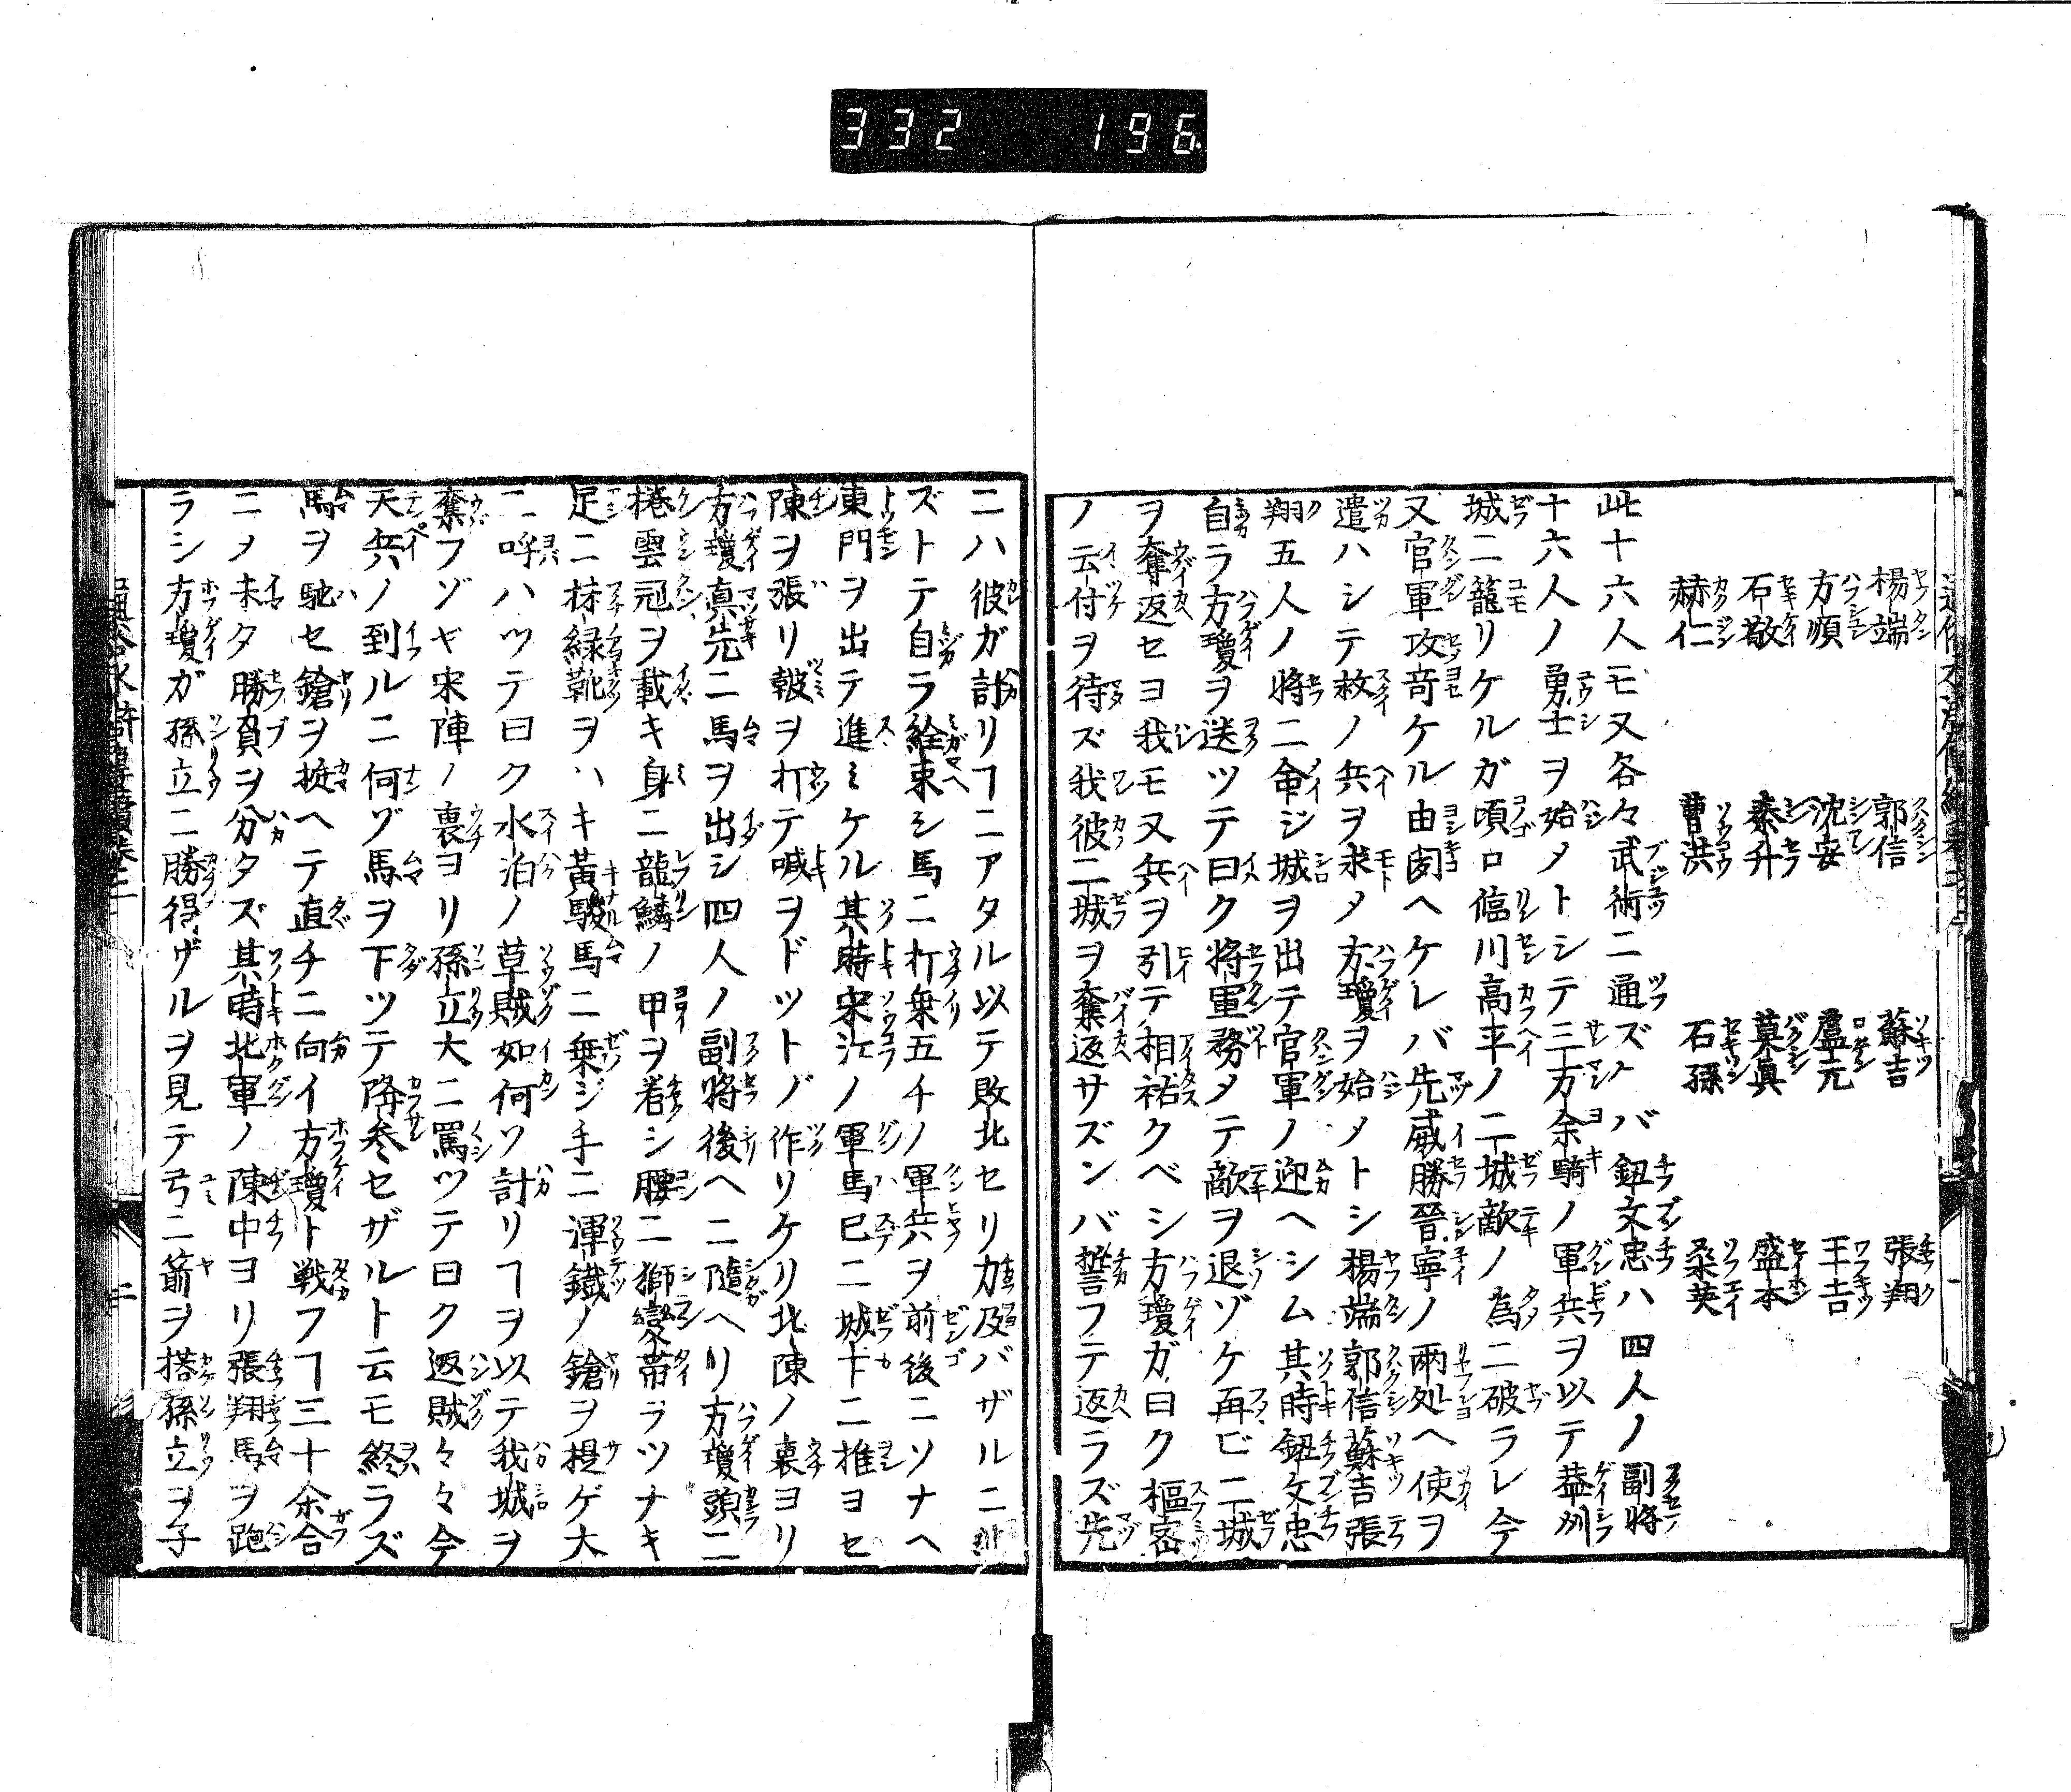 332 196
楊端 郭信 蘇吉 張翔
方順 沈安 盧元 王吉
石敬 秦升 莫真 盛本
赫仁 曹洪 石孫 桑英
此十六人モ又各々武術ニ通ズバ鈕文忠ハ四人ノ副将
十六人ノ勇士ヲ始メトシテ三万余騎ノ軍兵ヲ以テ益州
城ニ籠リケルガ頃ロ臨川高平ノ二城敵ノ為ニ破ラレ今
又官軍攻寄ケル由聞ヘケレバ先威勝晉寧ノ兩処ヘ使ヲ
遣ハシテ救ノ兵ヲ求メ方瓊ヲ始メトシ楊端郭信蘇吉張
翔五人ノ将ニ命ジ城ヲ出テ官軍ノ迎ヘシム其時鈕文忠
自ラ方瓊ヲ送ツテ曰ク将軍務メテ敵ヲ退ゾケ再ビ二城
ヲ奪返セヨ我モ又兵ヲ引テ相祐クベシ方瓊ガ曰ク樞密
ノ云付ヲ待ズ我彼二城ヲ奪返サズンバ誓フテ返ラズ先
ニハ彼ガ計リヿニアタル以テ敗北セリ力及バザルニ非
ズトテ自ラ絵束シ馬ニ打乗五チノ軍兵ヲ前後ニソナヘ
東門ヲ出テ進ミケル其時宋江ノ軍馬巳ニ城下ニ推ヨセ
陳ヲ張リ皷ヲ打テ喊ヲドツトゾ作リケリ北陳ノ裏ヨリ
方瓊真先ニ馬ヲ出シ四人ノ副将後ヘニ隨ヘリ方瓊頭ニ
捲雲冠ヲ載キ身ニ龍鱗ノ甲ヲ着シ腰ニ獅蠻帯ヲツナキ
足ニ抹緑靴ヲハキ黄駿馬ニ乗ジ手ニ渾鐵ノ鎗ヲ提ゲ大
ニ呼ハツテ曰ク水泊ノ草賊如何ソ計リヿヲ以テ我城ヲ
奪フゾヤ宋陣ノ裏ヨリ孫立大ニ罵ツテ曰ク返賊々々今
天兵ノ到ルニ何ゾ馬ヲ下ツテ降参セザルト云モ終ラズ
馬ヲ馳セ鎗ヲ挺ヘテ直チニ向イ方瓊ト戦フヿ三十余合
ニメ未タ勝負ヲ分タズ其時北軍ノ陳中ヨリ張翔馬ヲ跑
ラシ方瓊ガ孫立ニ勝得ザルヲ見テ弓ニ箭ヲ搭孫立ヲ子
二